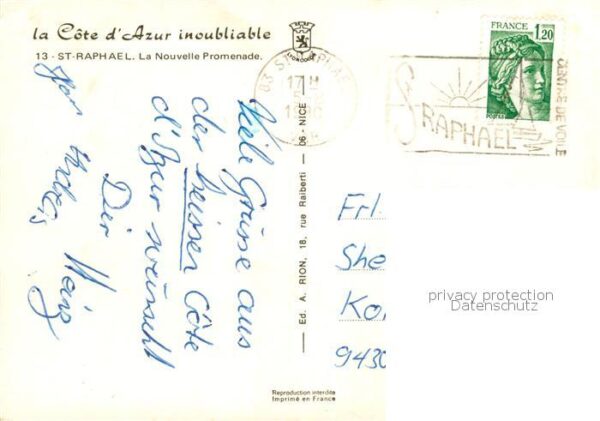 la Côte d'Azur inoubliable
13 - ST-RAPHAEL. La Nouvelle Promenade.
Viele Grüsse aus
der heissen Côte
d'Azur wünscht
Dir Heinz
Ed. A. RION, 18, rue Raiberti — 06 - NICE
Reproduction interdite
Imprimé en France
FRANCE
1,20
POSTES
83 ST RAPHAEL
17 H
ST RAPHAEL
CENTRE DE VOILE
Frl.
She
Ko
9430
privacy protection
Datenschutz